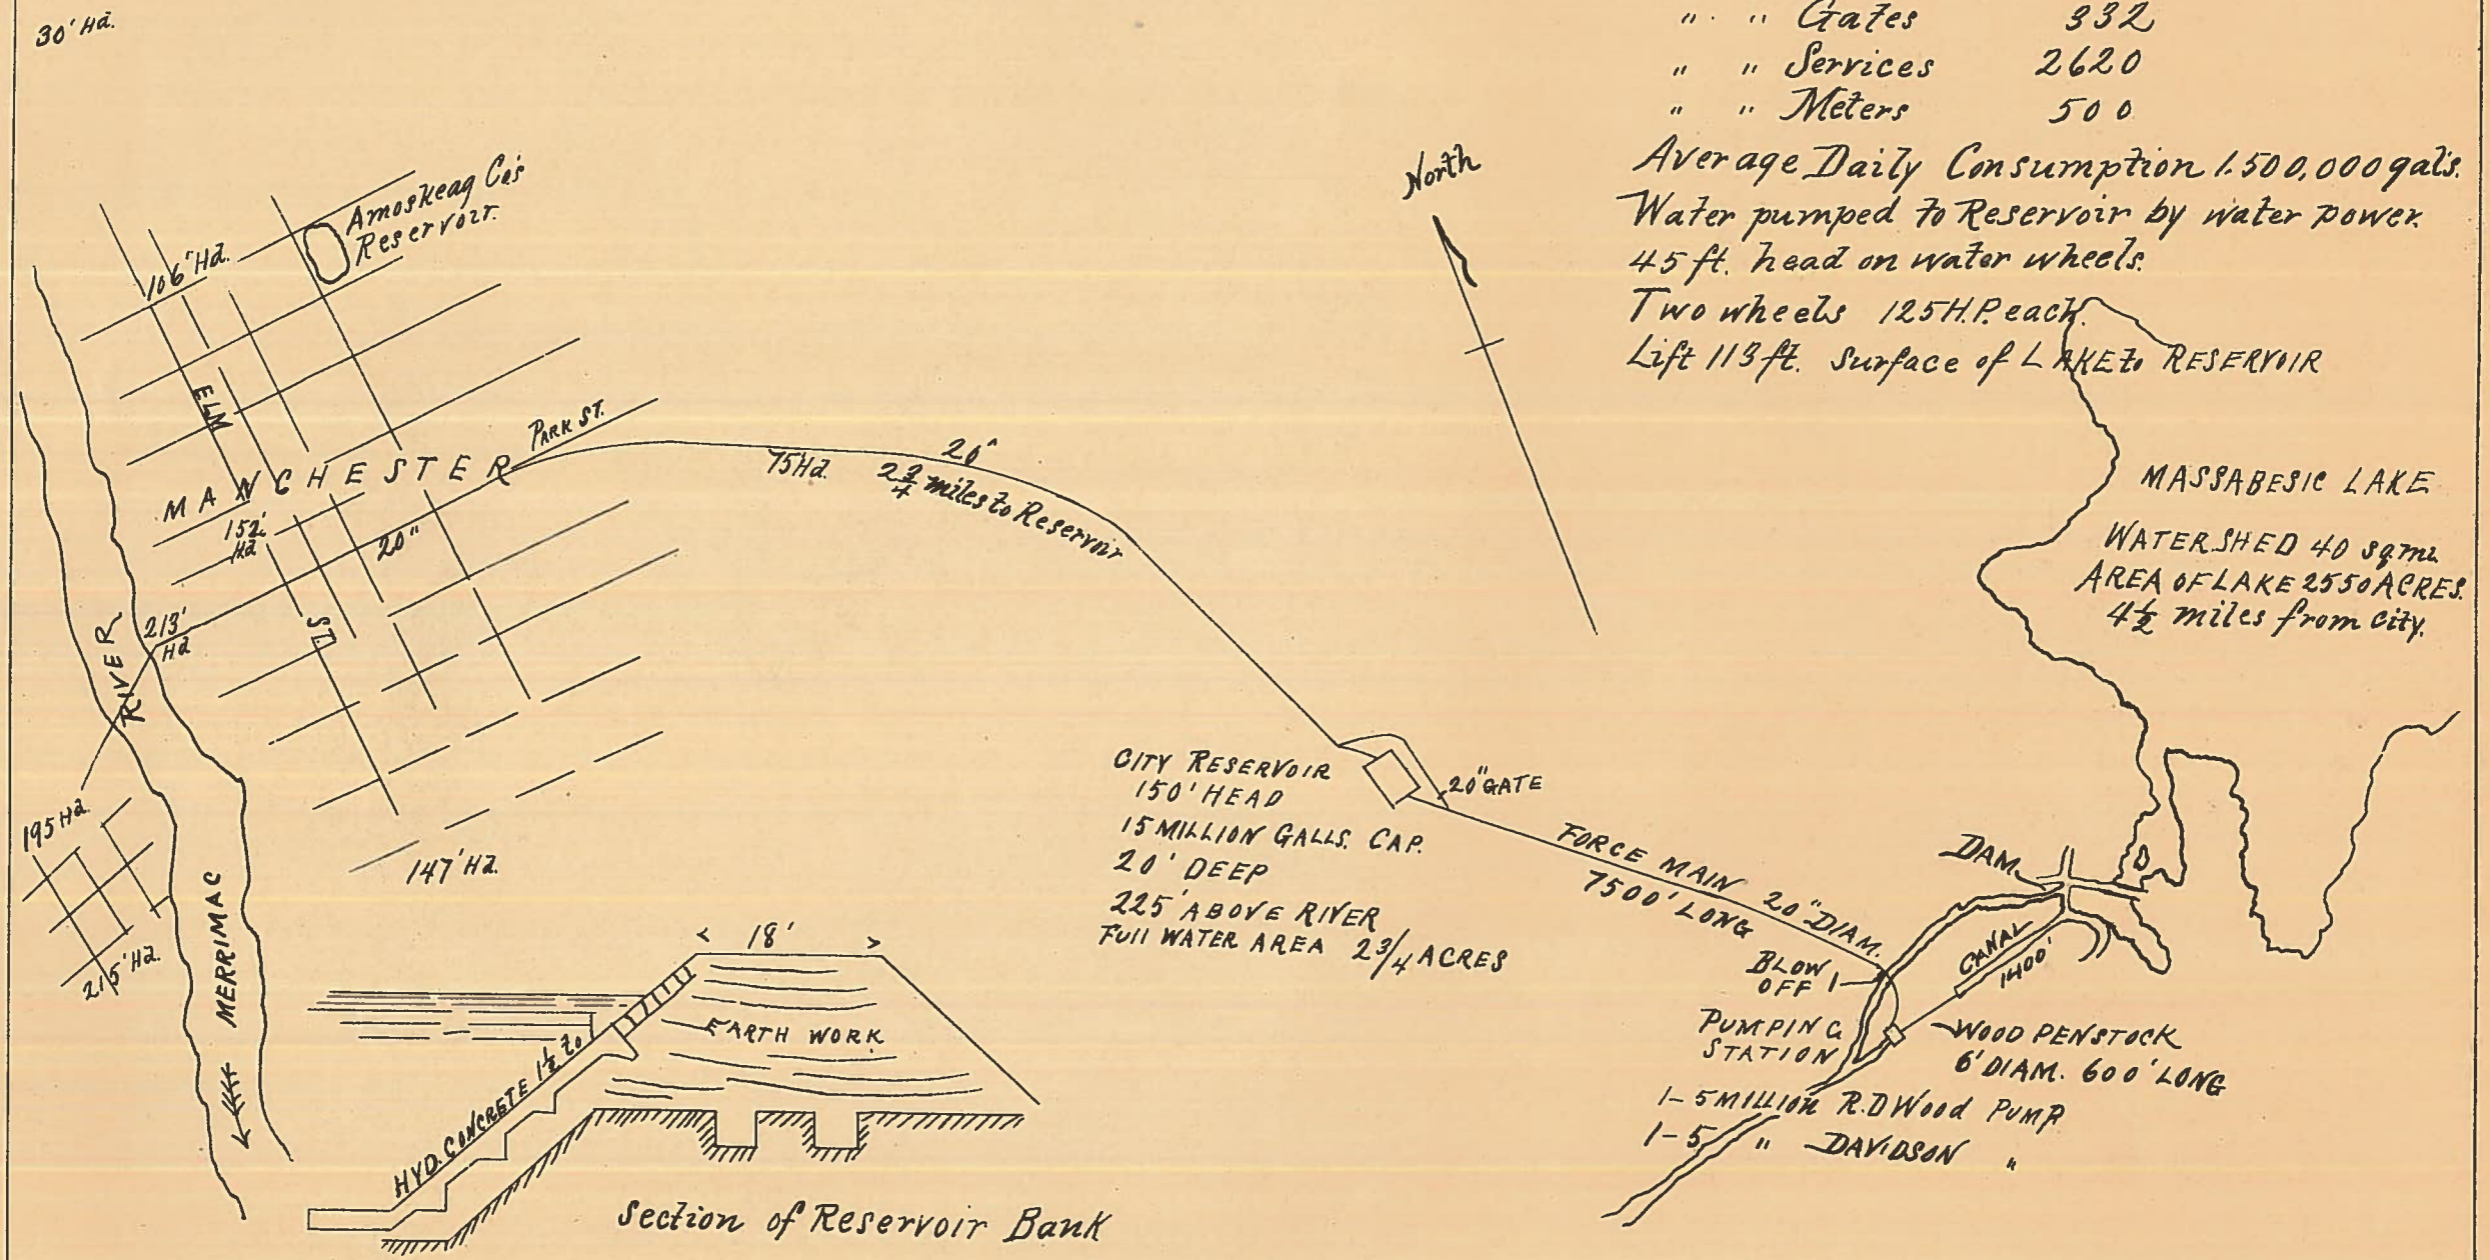 30' Hd.
" " Gates 332
" " Services 2620
" " Meters 500
Average Daily Consumption 1.500,000 gal's.
Water pumped to Reservoir by water power.
45 ft. head on water wheels.
Two wheels 125 H.P. each.
Lift 113 ft. Surface of LAKE to RESERVOIR
North
Amoskeag Co's
Reservoir.
106' Hd.
ELM
ST.
MANCHESTER
PARK ST.
152'
Hd
20"
213'
Hd
75 Hd.
20"
2 3/4 miles to Reservoir
MASSABESIC LAKE
WATER SHED 40 sq. mi.
AREA OF LAKE 2550 ACRES.
4 1/2 miles from City.
RIVER
MERRIMAC
195 Hd.
215' Hd.
147' Hd.
CITY RESERVOIR
150' HEAD
15 MILLION GALLS. CAP.
20' DEEP
225' ABOVE RIVER
Full WATER AREA 2 3/4 ACRES
20" GATE
FORCE MAIN 20" DIAM.
7500' LONG
DAM
CANAL
1400'
BLOW
OFF
PUMPING
STATION
WOOD PENSTOCK
6' DIAM. 600' LONG
1-5 MILLION R.D Wood PUMP
1-5 " DAVIDSON "
18'
EARTH WORK
HYD. CONCRETE 1 1/2 to 1
Section of Reservoir Bank